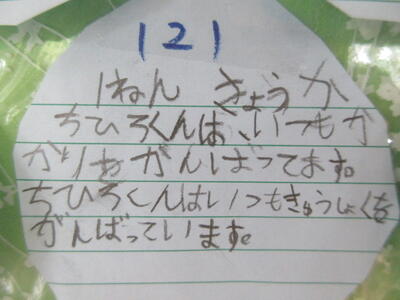 121
1ねん きょうか
ちひろくんは、いつもか
がりをがんばってます。
ちひろくんはいつもきゅうしょくを
がんばっています。